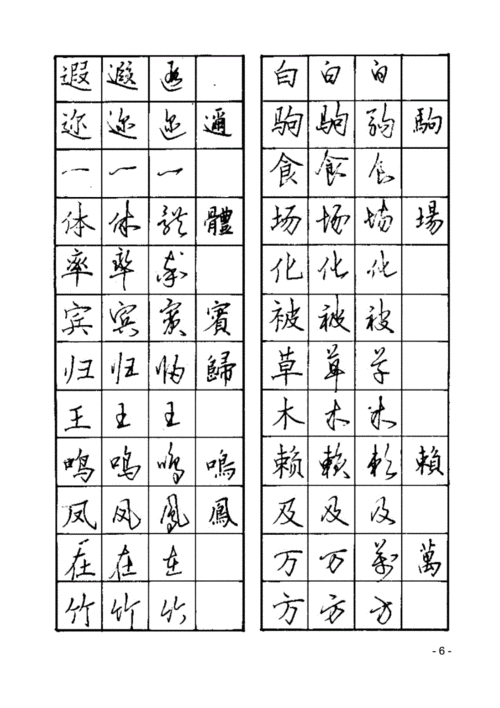 遐 遐 遐
迩 迩 迩 邇
一 一 一
体 体 体 體
率 率 率
宾 宾 宾 賓
归 归 归 歸
王 王 王
鸣 鸣 鸣 鳴
凤 凤 凤 鳳
在 在 在
竹 竹 竹
白 白 白
驹 驹 驹 駒
食 食 食
场 场 场 場
化 化 化
被 被 被
草 草 草
木 木 木
赖 赖 赖 賴
及 及 及
万 万 萬 萬
方 方 方
- 6 -